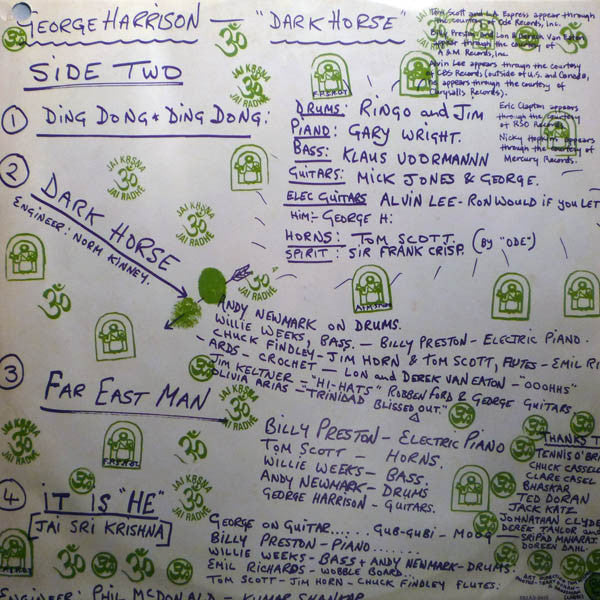 GEORGE HARRISON — "DARK HORSE"
Tom Scott and L.A. Express appear through
the courtesy of Ode Records, Inc.
Billy Preston and Lon & Derrek Van Eaton
appear through the courtesy of
A&M Records, Inc.
Alvin Lee appears through the courtesy
of CBS Records (outside of U.S. and Canada,
he appears through the courtesy of
Records).
Eric Clapton appears
through the courtesy
of RSO Records.
Nicky Hopkins appears
through the courtesy of
Mercury Records.
SIDE TWO
1 DING DONG * DING DONG:
DRUMS: RINGO and JIM
PIANO: GARY WRIGHT.
BASS: KLAUS VOORMANNN
GUITARS: MICK JONES & GEORGE.
ELEC GUITARS ALVIN LEE - RON WOULD IF YOU LET
HIM:- GEORGE H:
HORNS: TOM SCOTT. (BY "ODE")
SPIRIT: SIR FRANK CRISP.
2 DARK HORSE
ENGINEER: NORM KINNEY.
ANDY NEWMARK ON DRUMS.
WILLIE WEEKS, BASS. — BILLY PRESTON - ELECTRIC PIANO.
CHUCK FINDLEY - JIM HORN & TOM SCOTT, FLUTES - EMIL RI
ARDS - CROCHET — LON and DEREK VAN EATON - "OOOHHS"
JIM KELTNER - "HI-HATS" ROBBEN FORD & GEORGE GUITARS
OLIVIA ARIAS - "TRINIDAD BLISSED OUT."
3 FAR EAST MAN
BILLY PRESTON - ELECTRIC PIANO
TOM SCOTT - HORNS.
WILLIE WEEKS - BASS.
ANDY NEWMARK - DRUMS
GEORGE HARRISON - GUITARS.
THANKS T
TENNIS O'BR
CHUCK CASSELL
CLARE CASEL
BHASKAR
TED DORAN
JACK KATZ
JOHNATHAN CLYDE
DEREK TAYLOR and
SRIPAD MAHARAJ.
DOREEN DAHL.
4 IT IS "HE"
[JAI SRI KRISHNA]
GEORGE ON GUITAR...... GUB-GUBI - MOOG
BILLY PRESTON - PIANO......
WILLIE WEEKS - BASS + ANDY NEWMARK - DRUMS.
EMIL RICHARDS - WOBBLE BOARD...
TOM SCOTT - JIM HORN - CHUCK FINDLEY FLUTES.
ENGINEER: PHIL MCDONALD - KUMAR SHANKAR
JAI KRSNA
ॐ
JAI RADHE